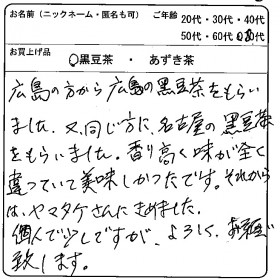 お名前（ニックネーム・匿名も可） ご年齢
20代・30代・40代
50代・60代
お買上げ品
黒豆茶 ・ あずき茶
広島の方から広島の黒豆茶をもらい
ました。又、同じ方に、名古屋の黒豆茶
をもらいました。香り高く味が全く
違っていて美味しかったです。それから
は、ヤマタケさんにきめました。
個人で少しですが、よろしく、お願
致します。